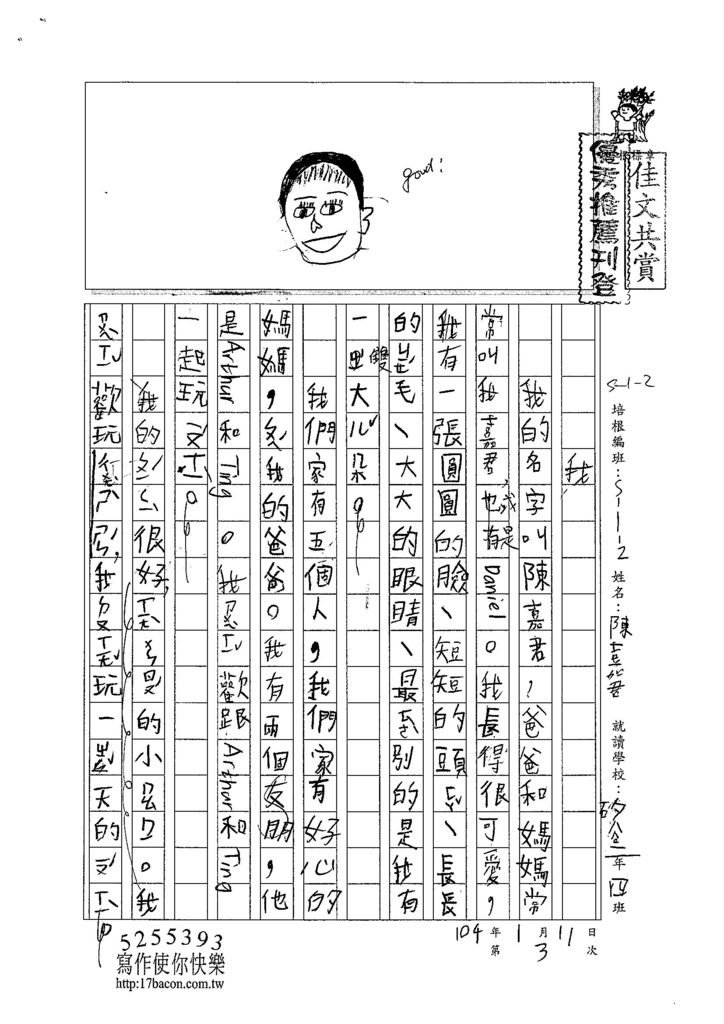 佳文共賞
優秀推薦刊登
good!
S-1-2
培根編班：S-1-2 姓名：陳嘉君 就讀學校： 一年四班
104年1月11日
第3次
我
我的名字叫陳嘉君，爸爸和媽媽常
常叫我嘉君，也或有是Daniel。我長得很可愛，
我有一張圓圓的臉、短短的頭ㄈㄚˇ、長長
的ㄐㄧㄝˊ毛、大大的眼睛、最ㄊㄜˋ別的是我有
一雙大ㄦˇ朵。
我們家有五個人，我們家有好心的
媽媽，ㄍㄣ我的爸爸。我有兩個友朋，他
是Arthur和Ting。我ㄒㄧˇ歡跟Arthur和Ting
一起玩ㄡˊㄒㄧˋ。
我的 很好， 的小 。我
ㄒㄧˇ歡玩 ，我 玩一 天的ㄡˊㄒㄧˋ。
5255393
寫作使你快樂
http:17bacon.com.tw